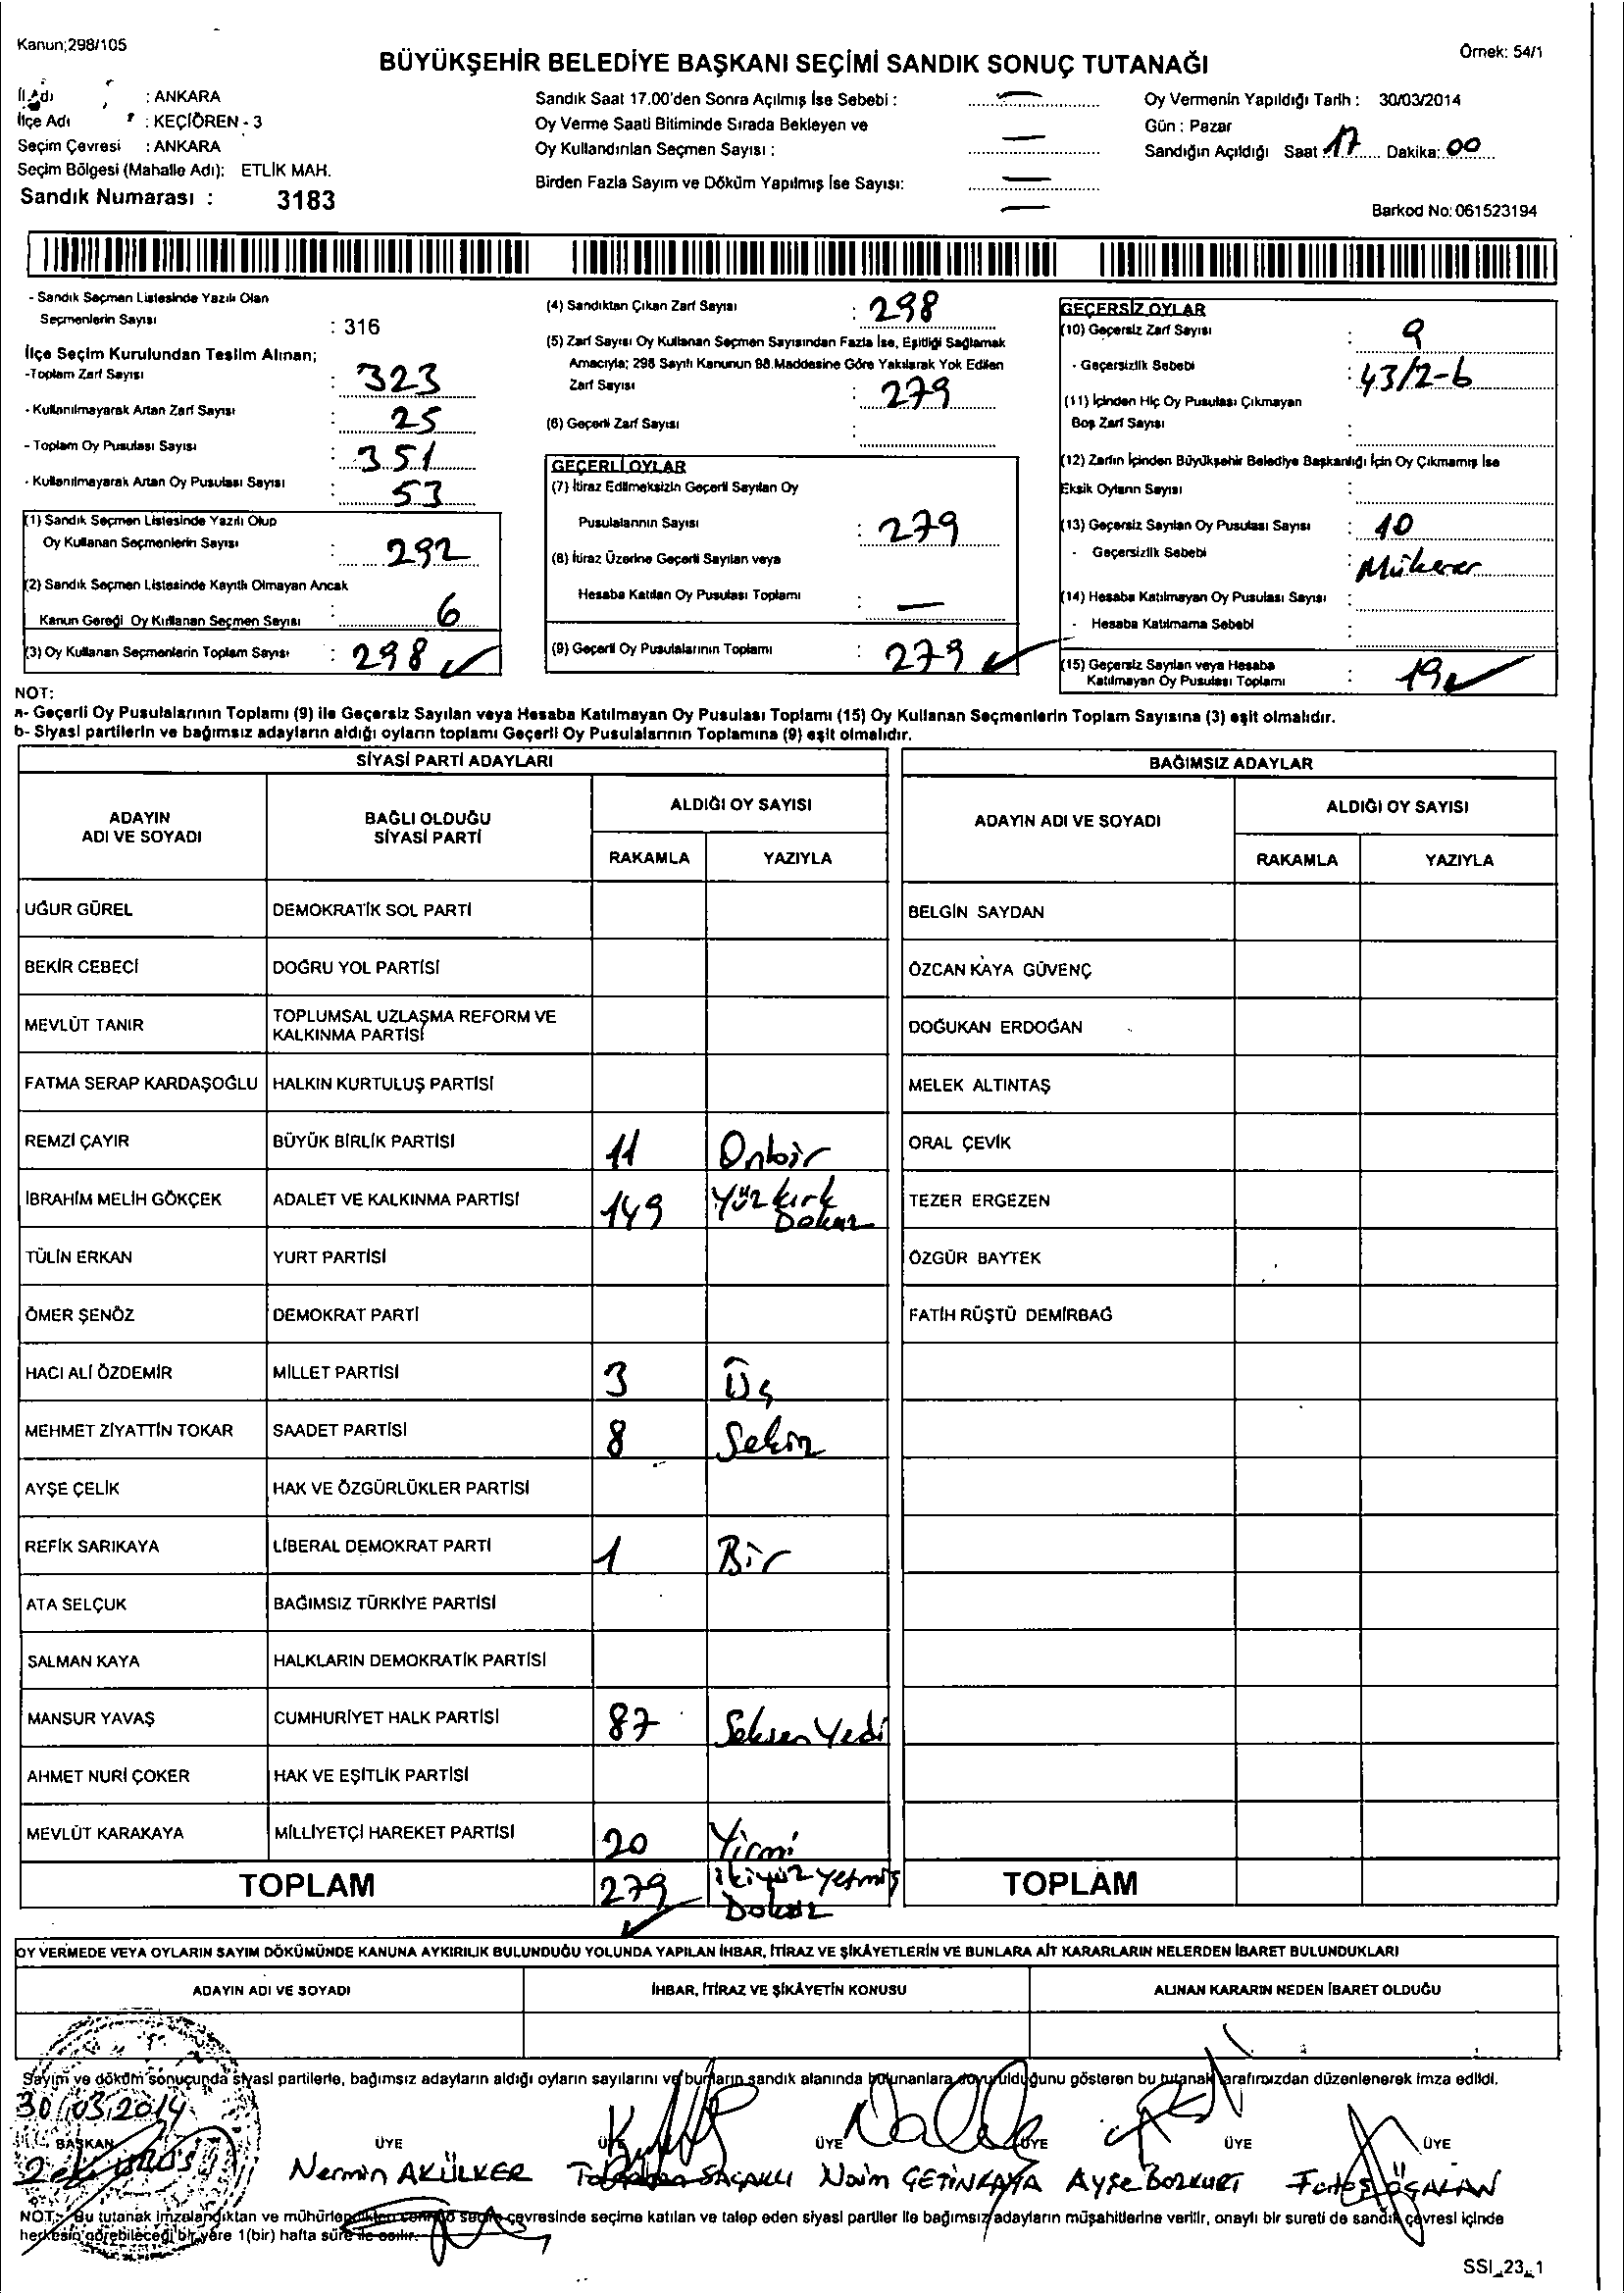 Kanun;298/105
Örnek: 54/1
BÜYÜKŞEHİR BELEDİYE BAŞKANI SEÇİMİ SANDIK SONUÇ TUTANAĞI
İl Adı : ANKARA
İlçe Adı : KEÇİÖREN - 3
Seçim Çevresi : ANKARA
Seçim Bölgesi (Mahalle Adı): ETLİK MAH.
Sandık Numarası : 3183
Sandık Saat 17.00'den Sonra Açılmış İse Sebebi :
Oy Verme Saati Bitiminde Sırada Bekleyen ve
Oy Kullandırılan Seçmen Sayısı :
Birden Fazla Sayım ve Döküm Yapılmış İse Sayısı:
Oy Vermenin Yapıldığı Tarih : 30/03/2014
Gün : Pazar
Sandığın Açıldığı Saat 17 Dakika: 00
Barkod No: 061523194
- Sandık Seçmen Listesinde Yazılı Olan
Seçmenlerin Sayısı : 316
İlçe Seçim Kurulundan Teslim Alınan;
-Toplam Zarf Sayısı : 323
- Kullanılmayarak Artan Zarf Sayısı : 25
- Toplam Oy Pusulası Sayısı : 351
- Kullanılmayarak Artan Oy Pusulası Sayısı : 53
(1) Sandık Seçmen Listesinde Yazılı Olup
Oy Kullanan Seçmenlerin Sayısı : 292
(2) Sandık Seçmen Listesinde Kayıtlı Olmayan Ancak
Kanun Gereği Oy Kullanan Seçmen Sayısı : 6
(3) Oy Kullanan Seçmenlerin Toplam Sayısı : 298
(4) Sandıktan Çıkan Zarf Sayısı : 298
(5) Zarf Sayısı Oy Kullanan Seçmen Sayısından Fazla İse, Eşitliği Sağlamak
Amacıyla; 298 Sayılı Kanunun 98.Maddesine Göre Yakılarak Yok Edilen
Zarf Sayısı : 279
(6) Geçerli Zarf Sayısı :
GEÇERLİ OYLAR
(7) İtiraz Edilmeksizin Geçerli Sayılan Oy
Pusulalarının Sayısı : 279
(8) İtiraz Üzerine Geçerli Sayılan veya
Hesaba Katılan Oy Pusulası Toplamı : —
(9) Geçerli Oy Pusulalarının Toplamı : 279
GEÇERSİZ OYLAR
(10) Geçersiz Zarf Sayısı : 9
- Geçersizlik Sebebi : 43/2-b
(11) İçinden Hiç Oy Pusulası Çıkmayan
Boş Zarf Sayısı :
(12) Zarfın İçinden Büyükşehir Belediye Başkanlığı İçin Oy Çıkmamış İse
Eksik Oyların Sayısı :
(13) Geçersiz Sayılan Oy Pusulası Sayısı : 10
- Geçersizlik Sebebi : Mükerer
(14) Hesaba Katılmayan Oy Pusulası Sayısı :
- Hesaba Katılmama Sebebi :
(15) Geçersiz Sayılan veya Hesaba
Katılmayan Oy Pusulası Toplamı : 19
NOT:
a- Geçerli Oy Pusulalarının Toplamı (9) ile Geçersiz Sayılan veya Hesaba Katılmayan Oy Pusulası Toplamı (15) Oy Kullanan Seçmenlerin Toplam Sayısına (3) eşit olmalıdır.
b- Siyasi partilerin ve bağımsız adayların aldığı oyların toplamı Geçerli Oy Pusulalarının Toplamına (9) eşit olmalıdır.
SİYASİ PARTİ ADAYLARI
ADAYIN ADI VE SOYADI
BAĞLI OLDUĞU SİYASİ PARTİ
ALDIĞI OY SAYISI
RAKAMLA YAZIYLA
UĞUR GÜREL DEMOKRATİK SOL PARTİ
BEKİR CEBECİ DOĞRU YOL PARTİSİ
MEVLÜT TANIR TOPLUMSAL UZLAŞMA REFORM VE KALKINMA PARTİSİ
FATMA SERAP KARDAŞOĞLU HALKIN KURTULUŞ PARTİSİ
REMZİ ÇAYIR BÜYÜK BİRLİK PARTİSİ 11 Onbir
İBRAHİM MELİH GÖKÇEK ADALET VE KALKINMA PARTİSİ 149 Yüz kırk Dokuz
TÜLİN ERKAN YURT PARTİSİ
ÖMER ŞENÖZ DEMOKRAT PARTİ
HACI ALİ ÖZDEMİR MİLLET PARTİSİ 3 Üç
MEHMET ZİYATTİN TOKAR SAADET PARTİSİ 8 Sekiz
AYŞE ÇELİK HAK VE ÖZGÜRLÜKLER PARTİSİ
REFİK SARIKAYA LİBERAL DEMOKRAT PARTİ 1 Bir
ATA SELÇUK BAĞIMSIZ TÜRKİYE PARTİSİ
SALMAN KAYA HALKLARIN DEMOKRATİK PARTİSİ
MANSUR YAVAŞ CUMHURİYET HALK PARTİSİ 87 Seksen Yedi
AHMET NURİ ÇOKER HAK VE EŞİTLİK PARTİSİ
MEVLÜT KARAKAYA MİLLİYETÇİ HAREKET PARTİSİ 20 Yirmi
TOPLAM 279 ikiyüz yetmiş Dokuz
BAĞIMSIZ ADAYLAR
ADAYIN ADI VE SOYADI
ALDIĞI OY SAYISI
RAKAMLA YAZIYLA
BELGİN SAYDAN
ÖZCAN KAYA GÜVENÇ
DOĞUKAN ERDOĞAN
MELEK ALTINTAŞ
ORAL ÇEVİK
TEZER ERGEZEN
ÖZGÜR BAYTEK
FATİH RÜŞTÜ DEMİRBAĞ
TOPLAM
OY VERMEDE VEYA OYLARIN SAYIM DÖKÜMÜNDE KANUNA AYKIRILIK BULUNDUĞU YOLUNDA YAPILAN İHBAR, İTİRAZ VE ŞİKÂYETLERİN VE BUNLARA AİT KARARLARIN NELERDEN İBARET BULUNDUKLARI
ADAYIN ADI VE SOYADI İHBAR, İTİRAZ VE ŞİKÂYETİN KONUSU ALINAN KARARIN NEDEN İBARET OLDUĞU
Sayım ve döküm sonucunda siyasi partilerle, bağımsız adayların aldığı oyların sayılarını ve bunların sandık alanında bulunanlara duyurulduğunu gösteren bu tutanak tarafımızdan düzenlenerek imza edildi.
30/03/2014
BAŞKAN ÜYE ÜYE ÜYE ÜYE ÜYE ÜYE
Nermin AKÜLKER SAÇAKLI Naim ÇETİNKAYA Ayşe BOZKURT
NOT: Bu tutanak imzalandıktan ve mühürlendikten sonra seçim çevresinde seçime katılan ve talep eden siyasi partiler ile bağımsız adayların müşahitlerine verilir, onaylı bir sureti de sandık çevresi içinde
herkesin görebileceği bir yere 1(bir) hafta süre ile asılır.
SSI_23_1